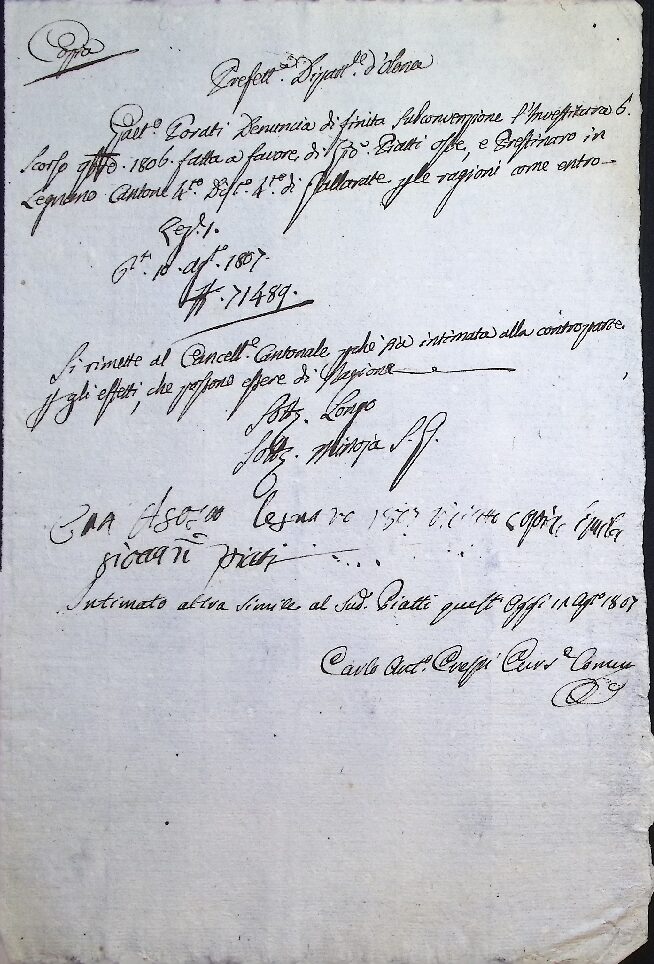 Copia
Prefett.ª Dipart.le d'Olona
Gaet.o Porati Denuncia di finita Subconvenzione l'Investitura 6.
scorso 9bre. 1806. fatta a favore di Gio. Piatti oste, e Prestinaro in
Legnano Cantone 4.to Dist.o 4.to di Gallarate p le ragioni come entro
Leg. 1.
10. ag.to 1807.
N. 71489.
Si rimette al Cancell.e Cantonale pché sia intimata alla controparte
p gli effetti, che possono essere di Ragione
Sott. Longo
Sott. Minoja S. G.
Agosto Legnano 1807 copia
gioaqñ piati
Intimato altra simile al Sud. Piatti questo Oggi 12 Ag.to 1807
Carlo Ant.o Crespi Curs.e Comun